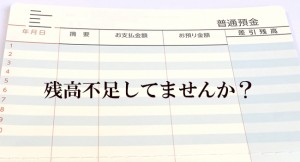 普通預金
年月日 摘要 お支払金額 お預り金額 差引残高
1
2
3
4
5
6
7
8
9
0
残高不足してませんか？